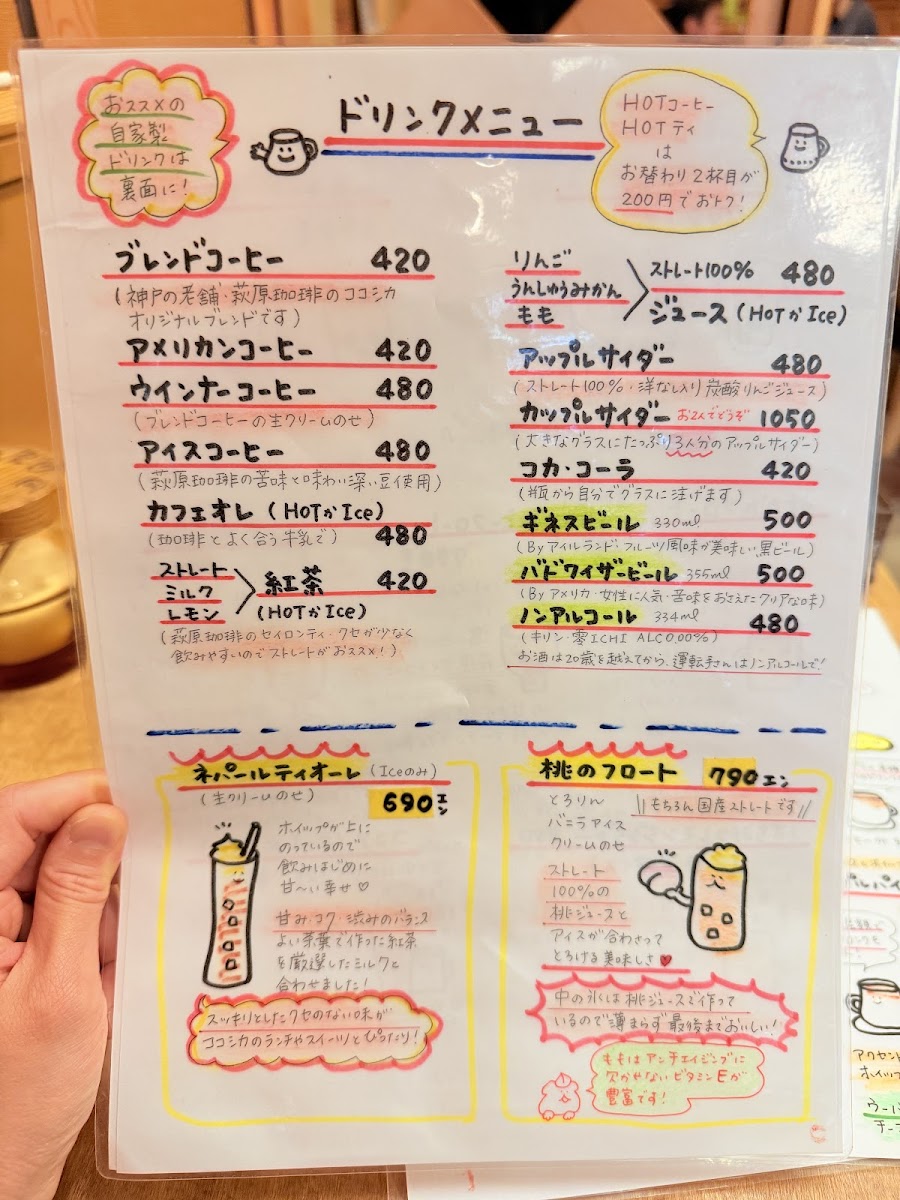 おススメの
自家製
ドリンクは
裏面に!
ドリンクメニュー
HOTコーヒー
HOTティ
は
お替わり2杯目が
200円でおトク!
ブレンドコーヒー 420
(神戸の老舗・萩原珈琲のココシカ
オリジナルブレンドです)
アメリカンコーヒー 420
ウインナーコーヒー 480
(ブレンドコーヒーの生クリームのせ)
アイスコーヒー 480
(萩原珈琲の苦味と味わい深い豆使用)
カフェオレ (HOTかIce)
(珈琲とよく合う牛乳で) 480
ストレート
ミルク
レモン
紅茶 420
(HOTかIce)
(萩原珈琲のセイロンティ・クセが少なく
飲みやすいのでストレートがおススメ!)
りんご
うんしゅうみかん
もも
ストレート100% 480
ジュース (HOTかIce)
アップルサイダー 480
(ストレート100%・洋なし入り炭酸りんごジュース)
カップルサイダー お2人でどうぞ 1050
(大きなグラスにたっぷり3人分のアップルサイダー)
コカ・コーラ 420
(瓶から自分でグラスに注げます)
ギネスビール 330ml 500
(Byアイルランド・フルーツ風味が美味しい黒ビール)
バドワイザービール 355ml 500
(Byアメリカ・女性に人気・苦味をおさえたクリアな味)
ノンアルコール 334ml 480
(キリン・零ICHI ALC0,00%)
お酒は20歳を越えてから、運転手さんはノンアルコールで!
ネパールティオーレ (Iceのみ)
(生クリームのせ) 690エン
ホイップが上に
のっているので
飲みはじめに
甘〜い幸せ♡
甘み・コク・渋みのバランス
よい茶葉で作った紅茶
を厳選したミルクと
合わせました!
スッキリとしたクセのない味が
ココシカのランチやスイーツとぴったり!
桃のフロート 790エン
\\もちろん国産ストレートです//
とろりん
バニラアイス
クリームのせ
ストレート
100%の
桃ジュースと
アイスが合わさって
とろける美味しさ♥
中の氷は桃ジュースで作って
いるので薄まらず最後までおいしい!
ももはアンチエイジングに
欠かせないビタミンEが
豊富です!
アクセント
ホイッ